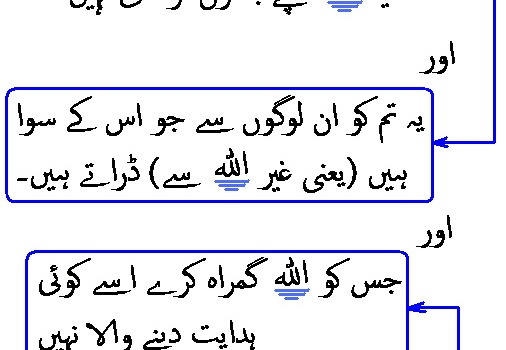 اور
یہ تم کو ان لوگوں سے جو اس کے سوا
ہیں (یعنی غیر اللہ سے) ڈراتے ہیں۔
اور
جس کو اللہ گمراہ کرے اسے کوئی
ہدایت دینے والا نہیں